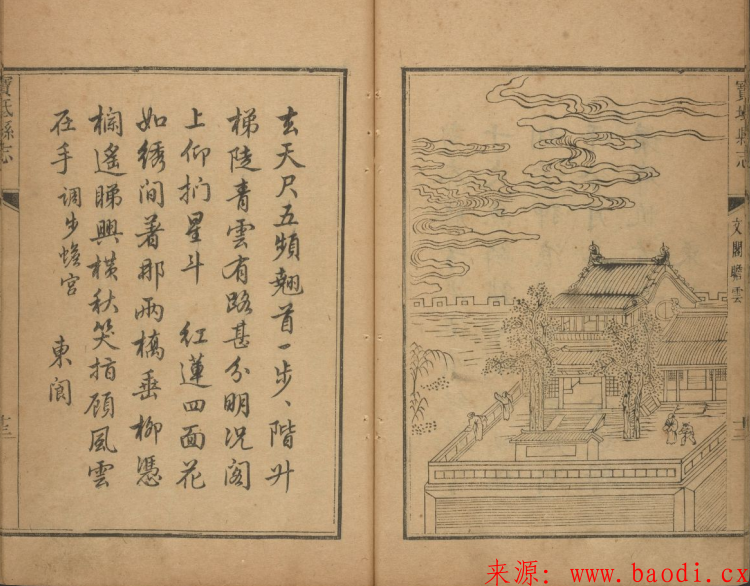 寶坻縣志
文閣瞻雲
十三
去天尺五頻翹首一步、階升
梯陡青雲有路甚分明況閣
上仰捫星斗 紅蓮四面花
如綉間著那兩橋垂柳憑
欄遙睇興橫秋笑指顧風雲
在手 調步蟾宮 東閬
寶坻縣志
十三
来源：www.baodi.cx